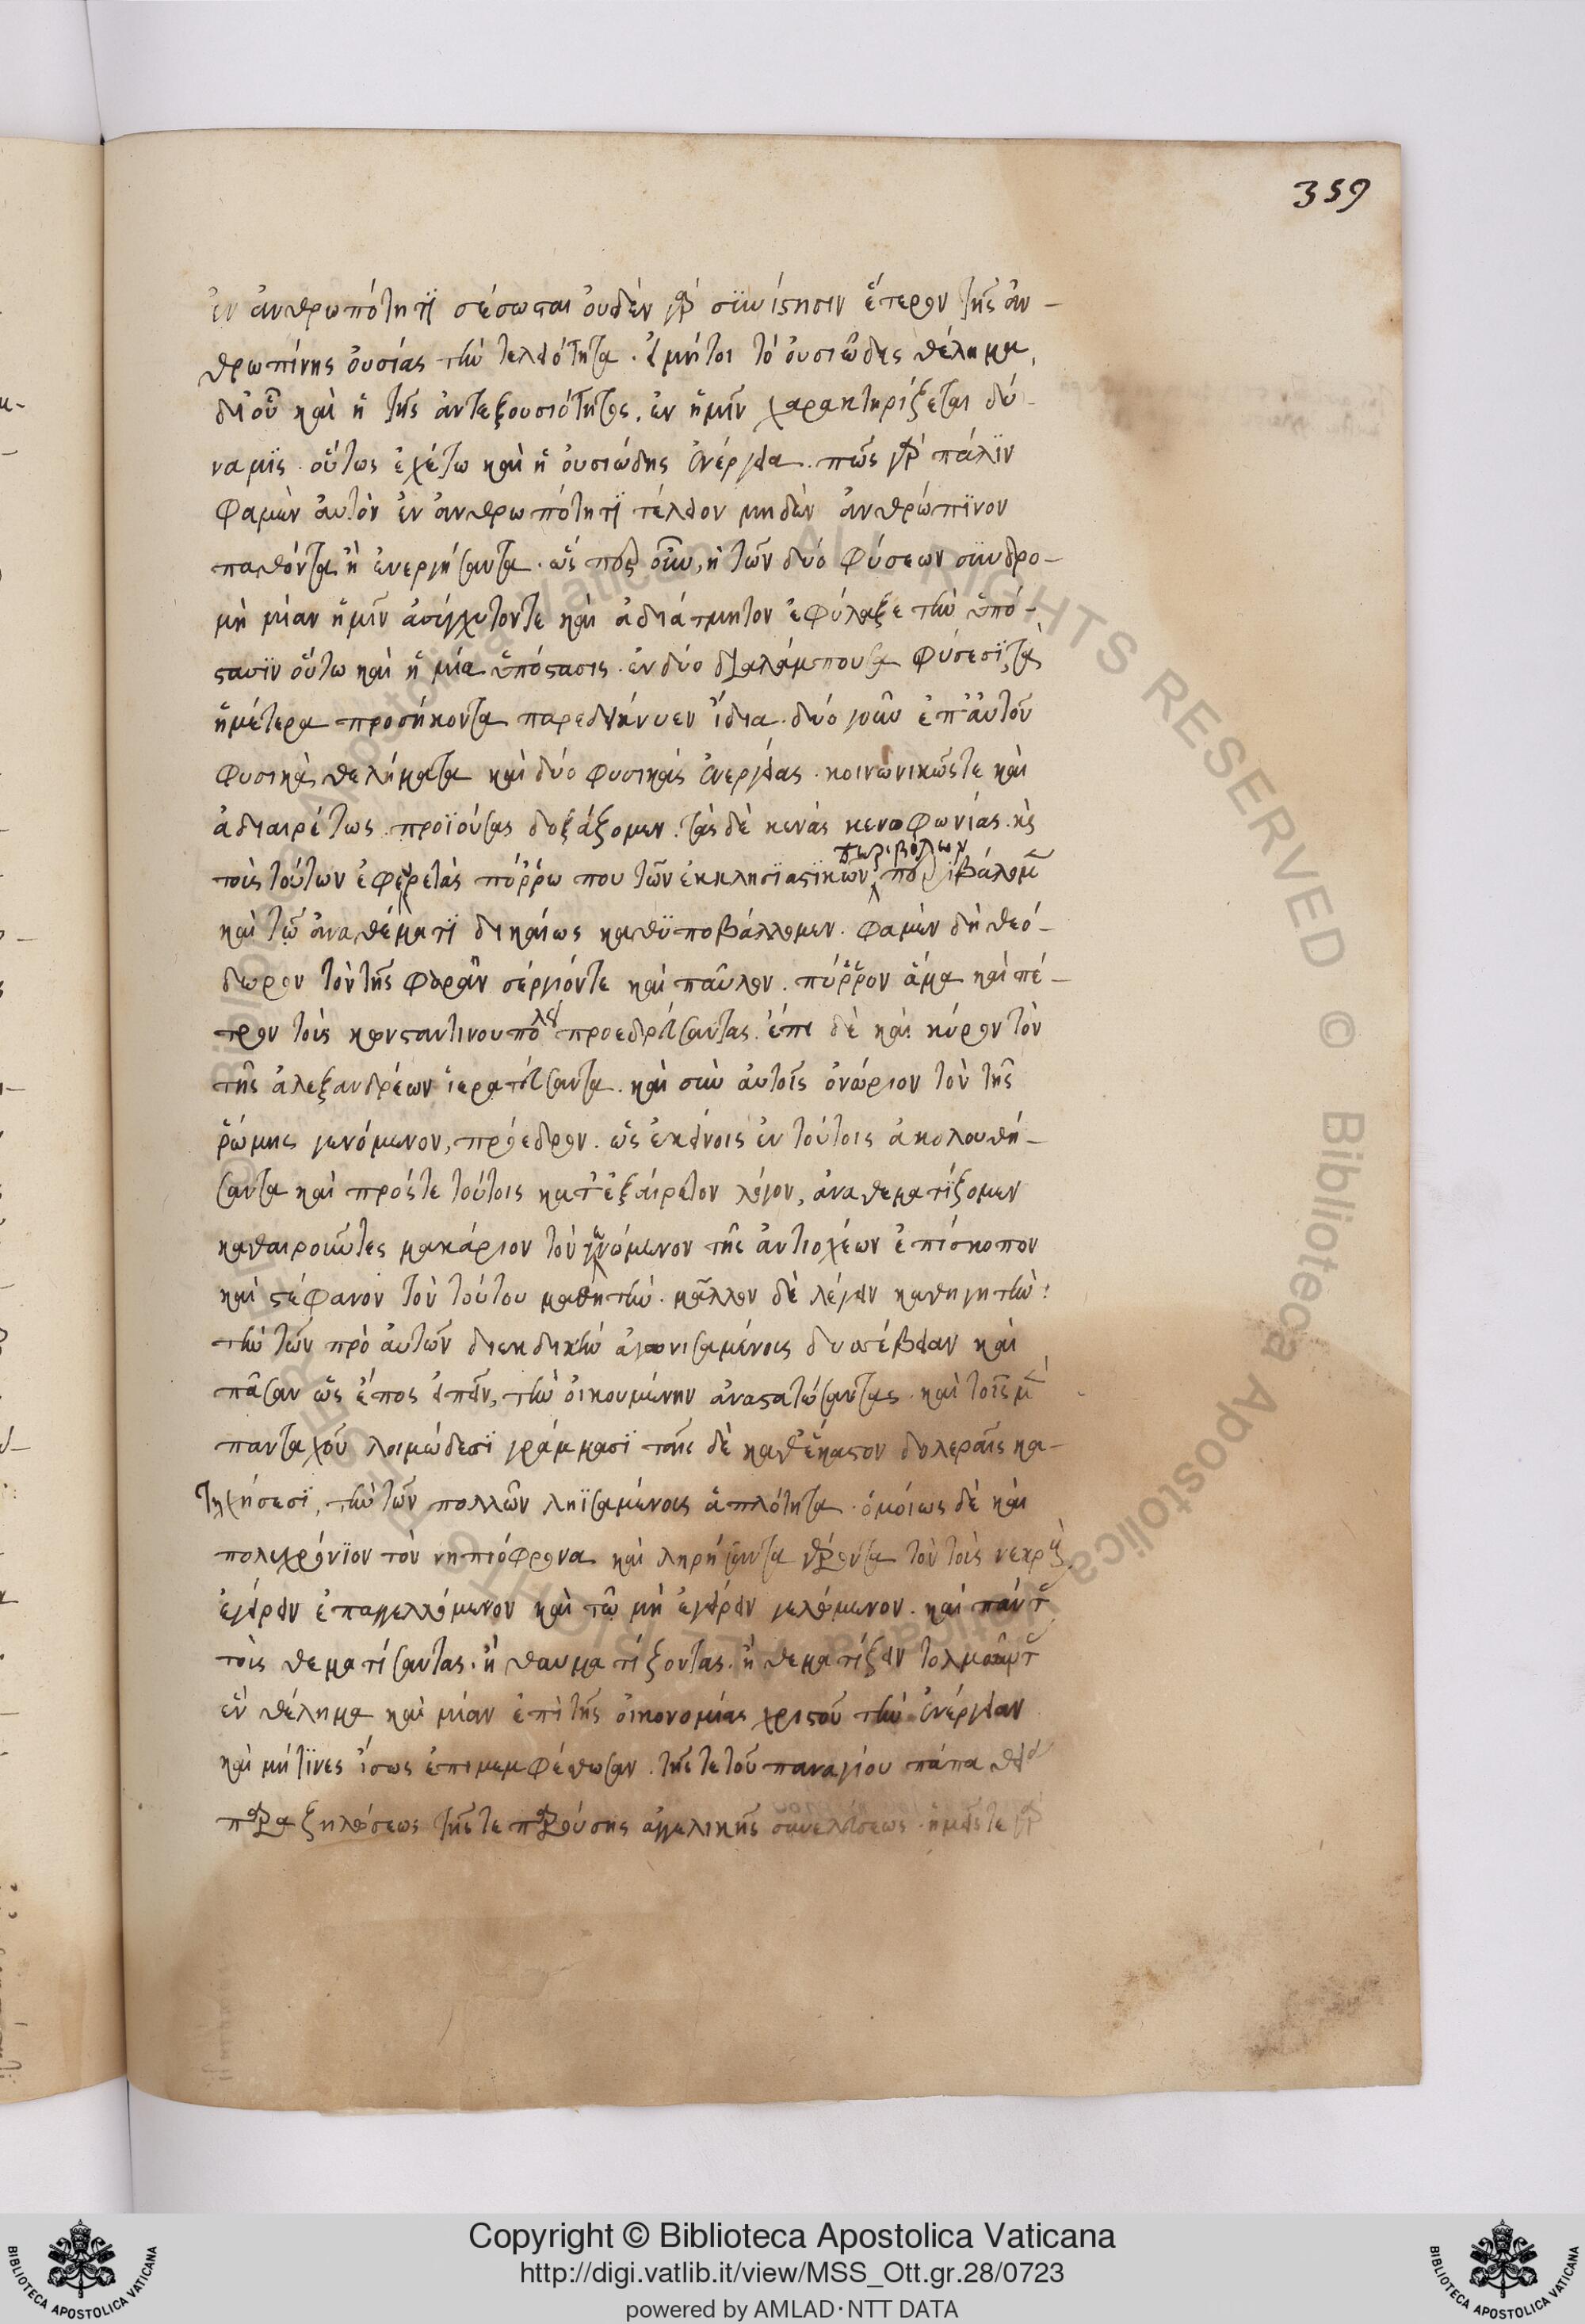 359
ἐν ἀνθρωπότητϊ σέσωσται ὀυδὲν γὰρ σϋνίστησιν ἕτερον τῆς ἀν-
θρωπίνης ὀυσίας τὴν τελειότητα. εἰ μήτοι τὸ ὀυσιῶδες θέλημα,
δι' οὗ καὶ ἡ τῆς ἀυτεξουσιότητος, ἐν ἡμῖν χαρακτηρίζεται δύ-
ναμϊς. οὕτως ἐχέτω καὶ ἡ ὀυσιώδης ἐνέργεια. πῶς γὰρ πάλϊν
φαμὲν ἀυτὸν ἐν ἀνθρωπότητϊ τέλειον μηδὲν ἀνθρώπϊνον
παθόντα ἢ ἐνεργήσαντα. ὥσπερ οὖν, ἡ τῶν δύο φύσεων σϋνδρο-
μὴ μίαν ἡμῖν ἀσύγχυτόντε καὶ ἀδιάτμητον ἐφύλαξε τὴν ὑπό-
στασϊν οὕτω καὶ ἡ μία ὑπόστασις. ἐν δύο διαλάμπουσα φύσεσϊ, τὰ
ἡμέτερα προσήκοντα παρεδείκνυεν ἴδια. δύο γοῦν ἐπ' ἀυτοῦ
φυσικὰ θελήματα καὶ δύο φυσικὰς ἐνεργείας. κοινωνικῶς τε καὶ
ἀδιαιρέτως. προϊούσας δοξάζομεν. τὰς δὲ κενὰς κενοφωνίας. κὶ
περιβόλων
τοὺς τούτων ἐφευρετὰς πόρρω που τῶν ἐκκλησϊαστϊκῶν περϊβάλομεν
καὶ τῷ ἀναθέματϊ δικαίως καθϋποβάλλομεν. φαμὲν δὴ θεό-
δωρον τὸν τῆς φαρὰν σέργιόντε καὶ παῦλον. πύρρον ἅμα καὶ πέ-
τρον τοὺς κωνσταντινουπόλεως προεδρεύσαντας. ἔτι δὲ καὶ κύρον τὸν
τῆς ἀλεξανδρέων ἱερατεύσαντα. καὶ σὺν ἀυτοῖς ὀνώριον τὸν τῆς
ῥώμης γενόμενον, πρόεδρον. ὡς ἐκείνοις ἐν τούτοις ἀκολουθή-
σαντα καὶ πρόστε τούτοις κατ' ἐξαίρετον λόγον, ἀναθεματίζομεν
καθαιροῦντες μακάριον τὸν γενόμενον τῆς ἀντιοχέων ἐπίσκοπον
καὶ στέφανον τὸν τούτου μαθητὴν. μᾶλλον δὲ λέγειν καθηγητὴν:
τὴν τῶν πρὸ ἀυτῶν διεκδικεῖν ἀγωνισαμένους δυσέβειαν καὶ
πᾶσαν ὡς ἔπος εἰπεῖν, τὴν ὀικουμένην ἀναστατώσαντας. καὶ τοῖς μὲν
πανταχοῦ λοιμώδεσϊ γράμμασϊ ταῖς δὲ καθ' ἕκαστον δολεραῖς κα-
τηχήσεσϊ, τὴν τῶν πολλῶν ληϊσαμένους ἁπλότητα. ὁμοίως δὲ καὶ
πολυχρόνϊον τὸν νηπιόφρονα καὶ ληρήσαντα γέροντα τὸν τοὺς νεκροὺς
ἐγείρειν ἐπαγγελλόμενον καὶ τῷ μὴ ἐγείρειν γελώμενον. καὶ πάντας
τοὺς θεματίσαντας. ἢ θαυματίζοντας. ἢ θεματίζειν τολμῶντας
ἓν θέλημα καὶ μίαν ἐπὶ τῆς ὀικονομίας χριστοῦ τὴν ἐνέργειαν
καὶ μήτϊνες ἴσως ἐπιμεμφέσθωσαν. τῆς τε τοῦ παναγίου πάπα θεῖα
παραζηλώσεως τῆς τε παρούσης ἀγγελικῆς συνελεύσεως. ἡμεῖς τε γὰρ